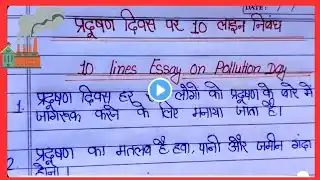 DATE: / /
प्रदूषण दिवस पर 10 लाइन निबंध
10 lines Essay on Pollution Day
1. प्रदूषण दिवस हर लोगों को प्रदूषण के बारे में
जागरूक करने के लिए मनाया जाता है।
2. प्रदूषण का मतलब है हवा, पानी और जमीन गंदा
होना।